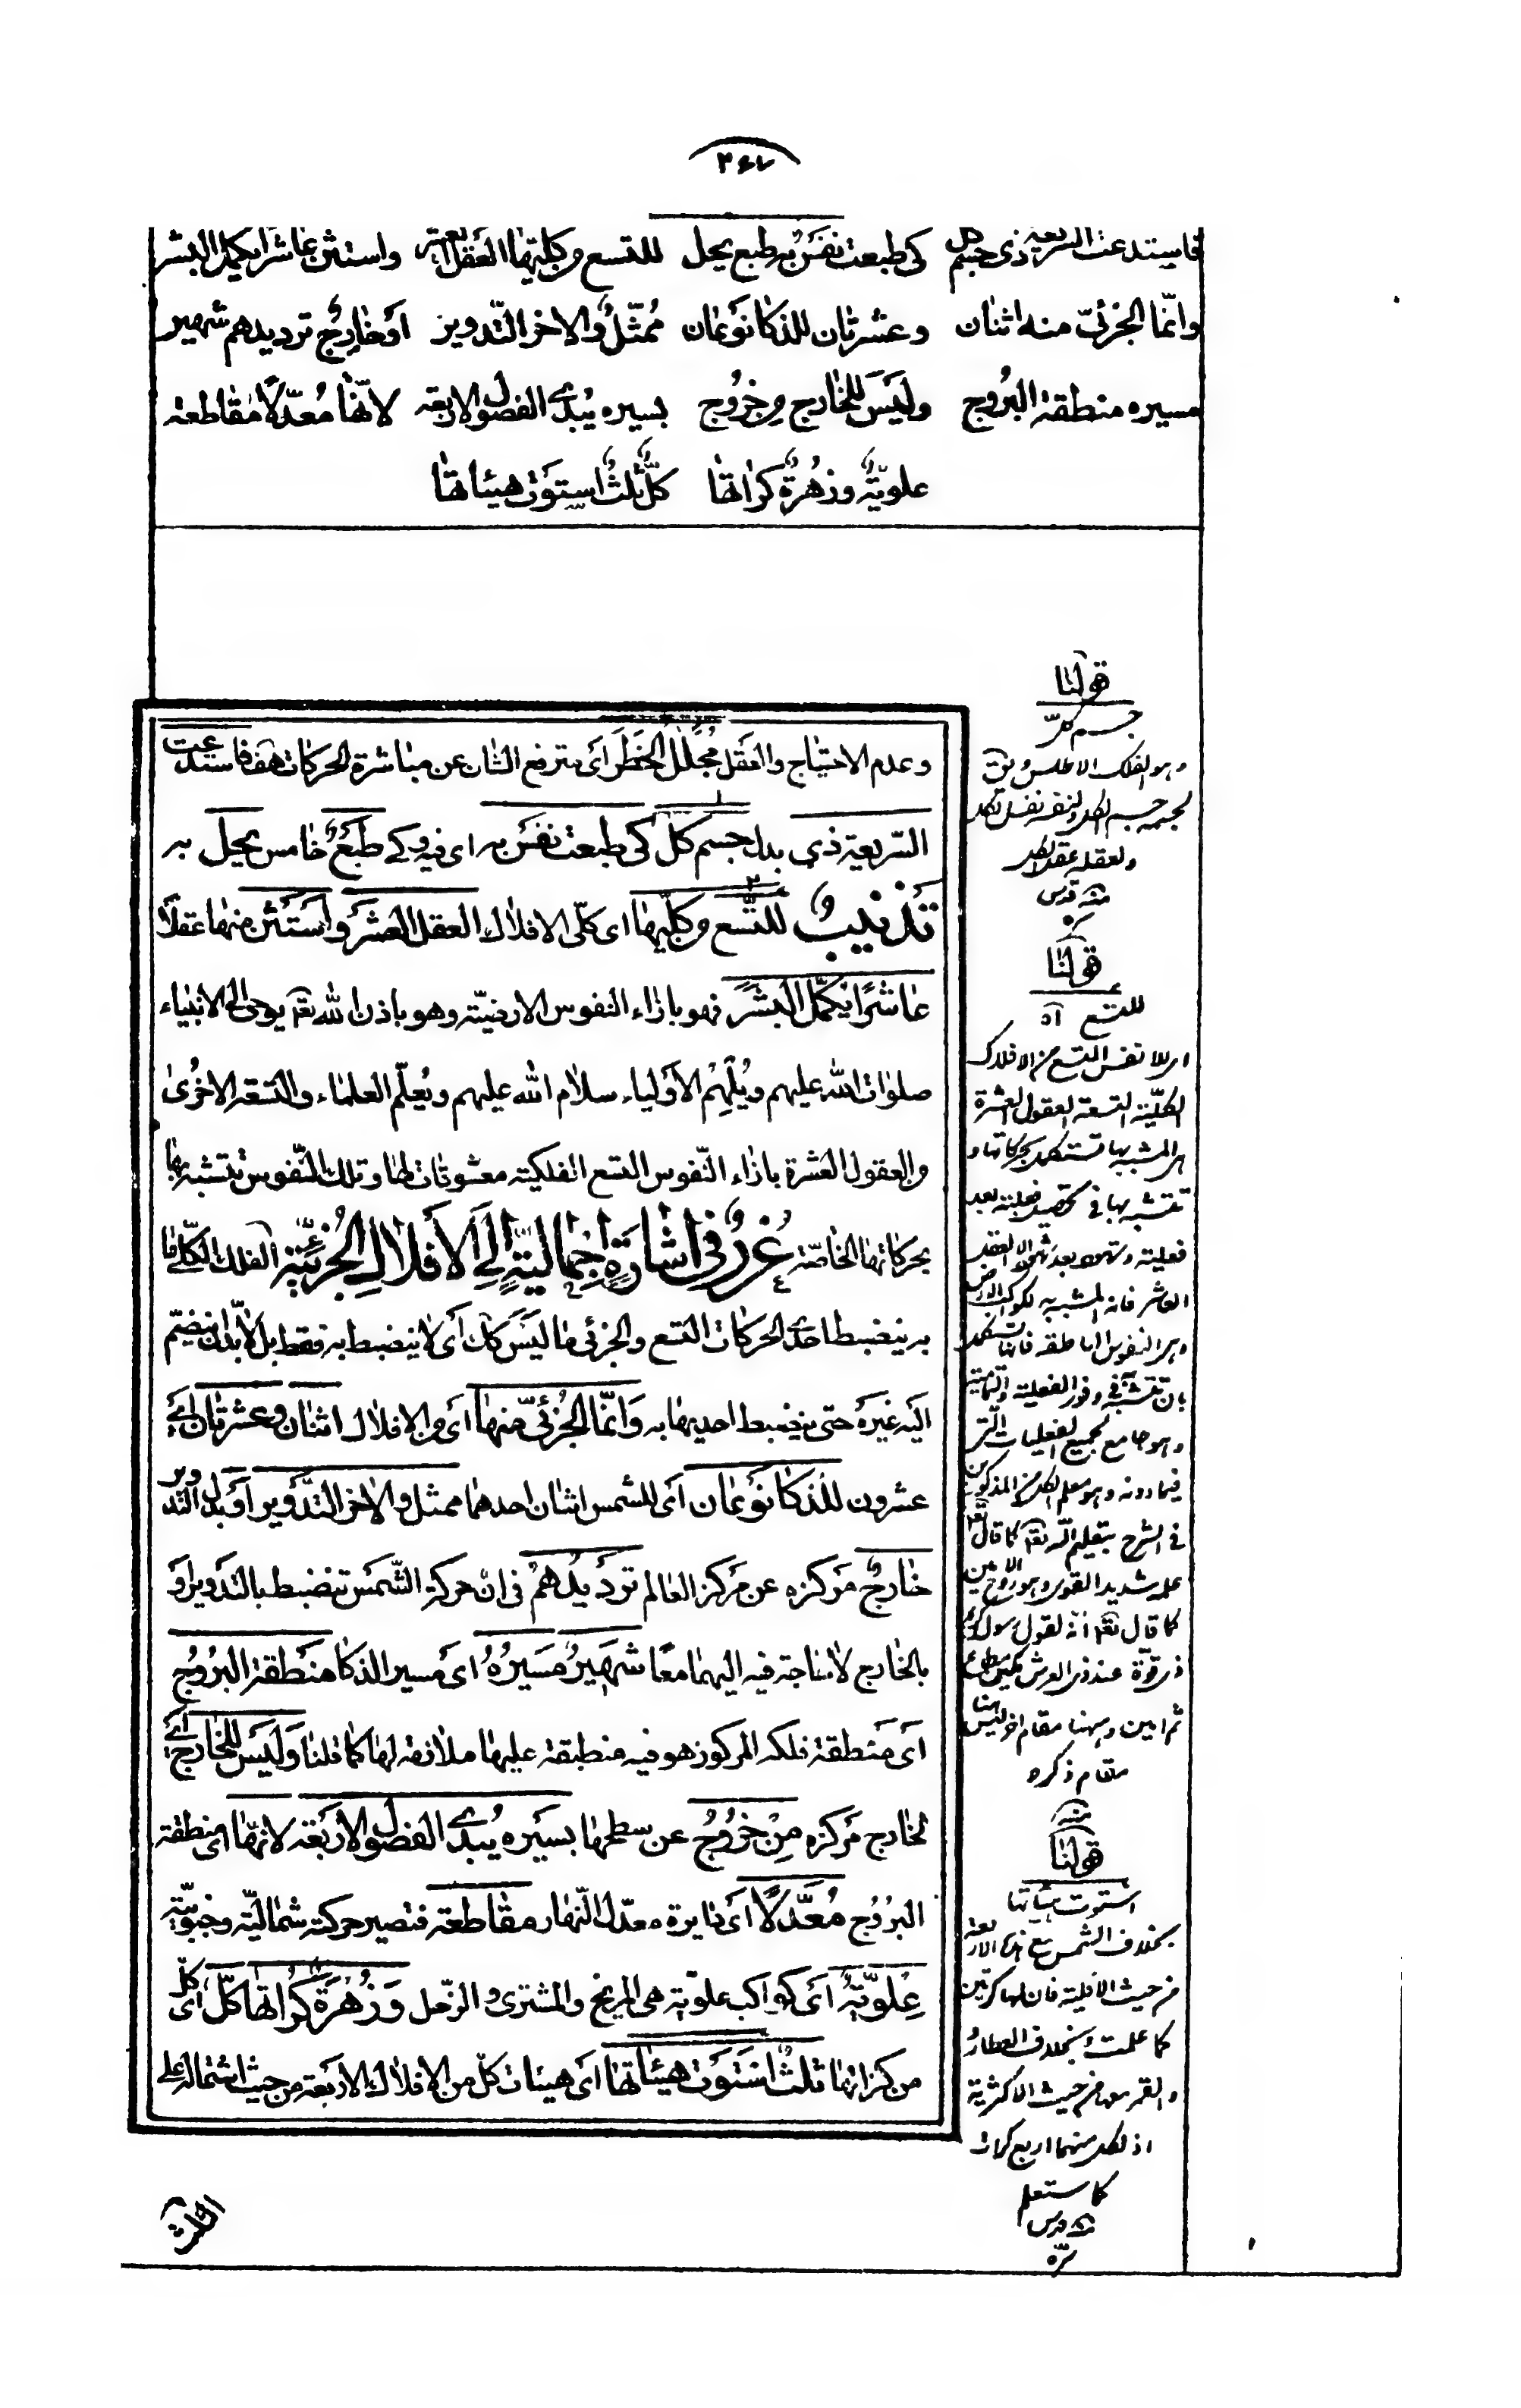 ٢۶٧
فاستدعت السريعة ذى جسم كل كى طبعت نفس به طبع يحل للتسع من كليتها العقل اربعة واستثن عاشرا يكمل البشر
وانما الجزئى منه اثنان وعشرتان للذكا نوعان ممثل والاخر التدوير او خارج ترديدهم شهير
مسيره منطقة البروج وليس للخارج من خروج بسيره يبدى الفصول الاربعة لانها معدلا مقاطعة
علوية وزهرة كراتها كل ثلث استوت هيئاتها
وعدم الاحتياج والعقل مجلل الخطر اى مترفع الشان عن مباشرة الحركات هف فاستدعت
السريعة ذى بدل جسم كل كى طبعت نفس به اى فيه وكى طبع خامس يحل به
تذنيب للتسع من كليها اى كلى الافلاك العقل العشر واستثن منها عقلا
عاشرا يكمل البشر فهو بازاء النفوس الارضية وهو باذن الله تعم يوحى الى الانبياء
صلوات الله عليهم ويلهم الاولياء سلام الله عليهم ويعلم العلماء والتسعة الاخرى
والعقول العشرة بازاء النفوس التسع الفلكية معشوقات لها وتلك النفوس تتشبه بها
بحركاتها الخاصة غرر فى اشارة اجمالية الى الافلاك الجزئية الفلك الكلى ما
به ينضبط احدى الحركات التسع والجزئى ما ليس كك اى لا ينضبط به فقط بل لابد ان ينضم
اليه غيره حتى ينضبط احديها به وانما الجزئى منها اى من الافلاك اثنان وعشرتان اى
عشرون للذكا نوعان اى للشمس اثنان احدهما ممثل والاخر التدوير او بدل التدوير
خارج مركزه عن مركز العالم ترديدهم فى ان حركة الشمس تنضبط بالتدوير او
بالخارج لا حاجة فيه اليهما معا شهير مسيره اى مسير الذكا منطقة البروج
اى منطقة فلكه المركوز هو فيه منطبقة عليها ملازقة لها كما قلنا وليس للخارج اى
لخارج مركزه من خروج عن سطحها بسيره يبدى الفصول الاربعة لانها اى منطقة
البروج معدلا اى دايرة معدل النهار مقاطعة فتصير حركته شمالية وجنوبية
علوية اى كواكب علوية هى المريخ والمشترى والزحل وزهرة كراتها كل اى كل
من كراتها ثلث استوت هيئاتها اى هيئات كل من الافلاك الاربعة من حيث اشتماله على
الثلث
قولنا
جسم كل
وهو الفلك الاطلس ويق
لجسمه جسم الكل ولنفسه نفس الكل
ولعقله عقل الكل
منه قدس
سره
قولنا
للتسع آه
الكلية التسعة العقول العشرة
هى المشبه بها تستكمل بحركاتها و
تتشبه بها فى تحصيل فعلية بعد
العاشر فانه المشبه به لكواكب الارض
وهى النفوس الناطقة فانها تستكمل
وهو جامع لجميع الفعليات التى
فيما دونه وهو معلم الكل من المذكورين
فى الشرح بتعليم الله تعم كما قال تعم
علمه شديد القوى وهو الروح الامين
كما قال تعم انه لقول رسول كريم
ذى قوة عند ذى العرش مكين مطاع
ثم امين وههنا مقام آخر ليس هنا
مقام ذكره
منه
قولنا
استوت هيئاتها
بخلاف الشمس مع هذه الاربعة
من حيث الاقلية فان لها كرتين
كما علمت وبخلاف العطارد
والقمر معها من حيث الاكثرية
اذ لكل منهما اربع كرات
كما ستعلم
منه قدس
سره